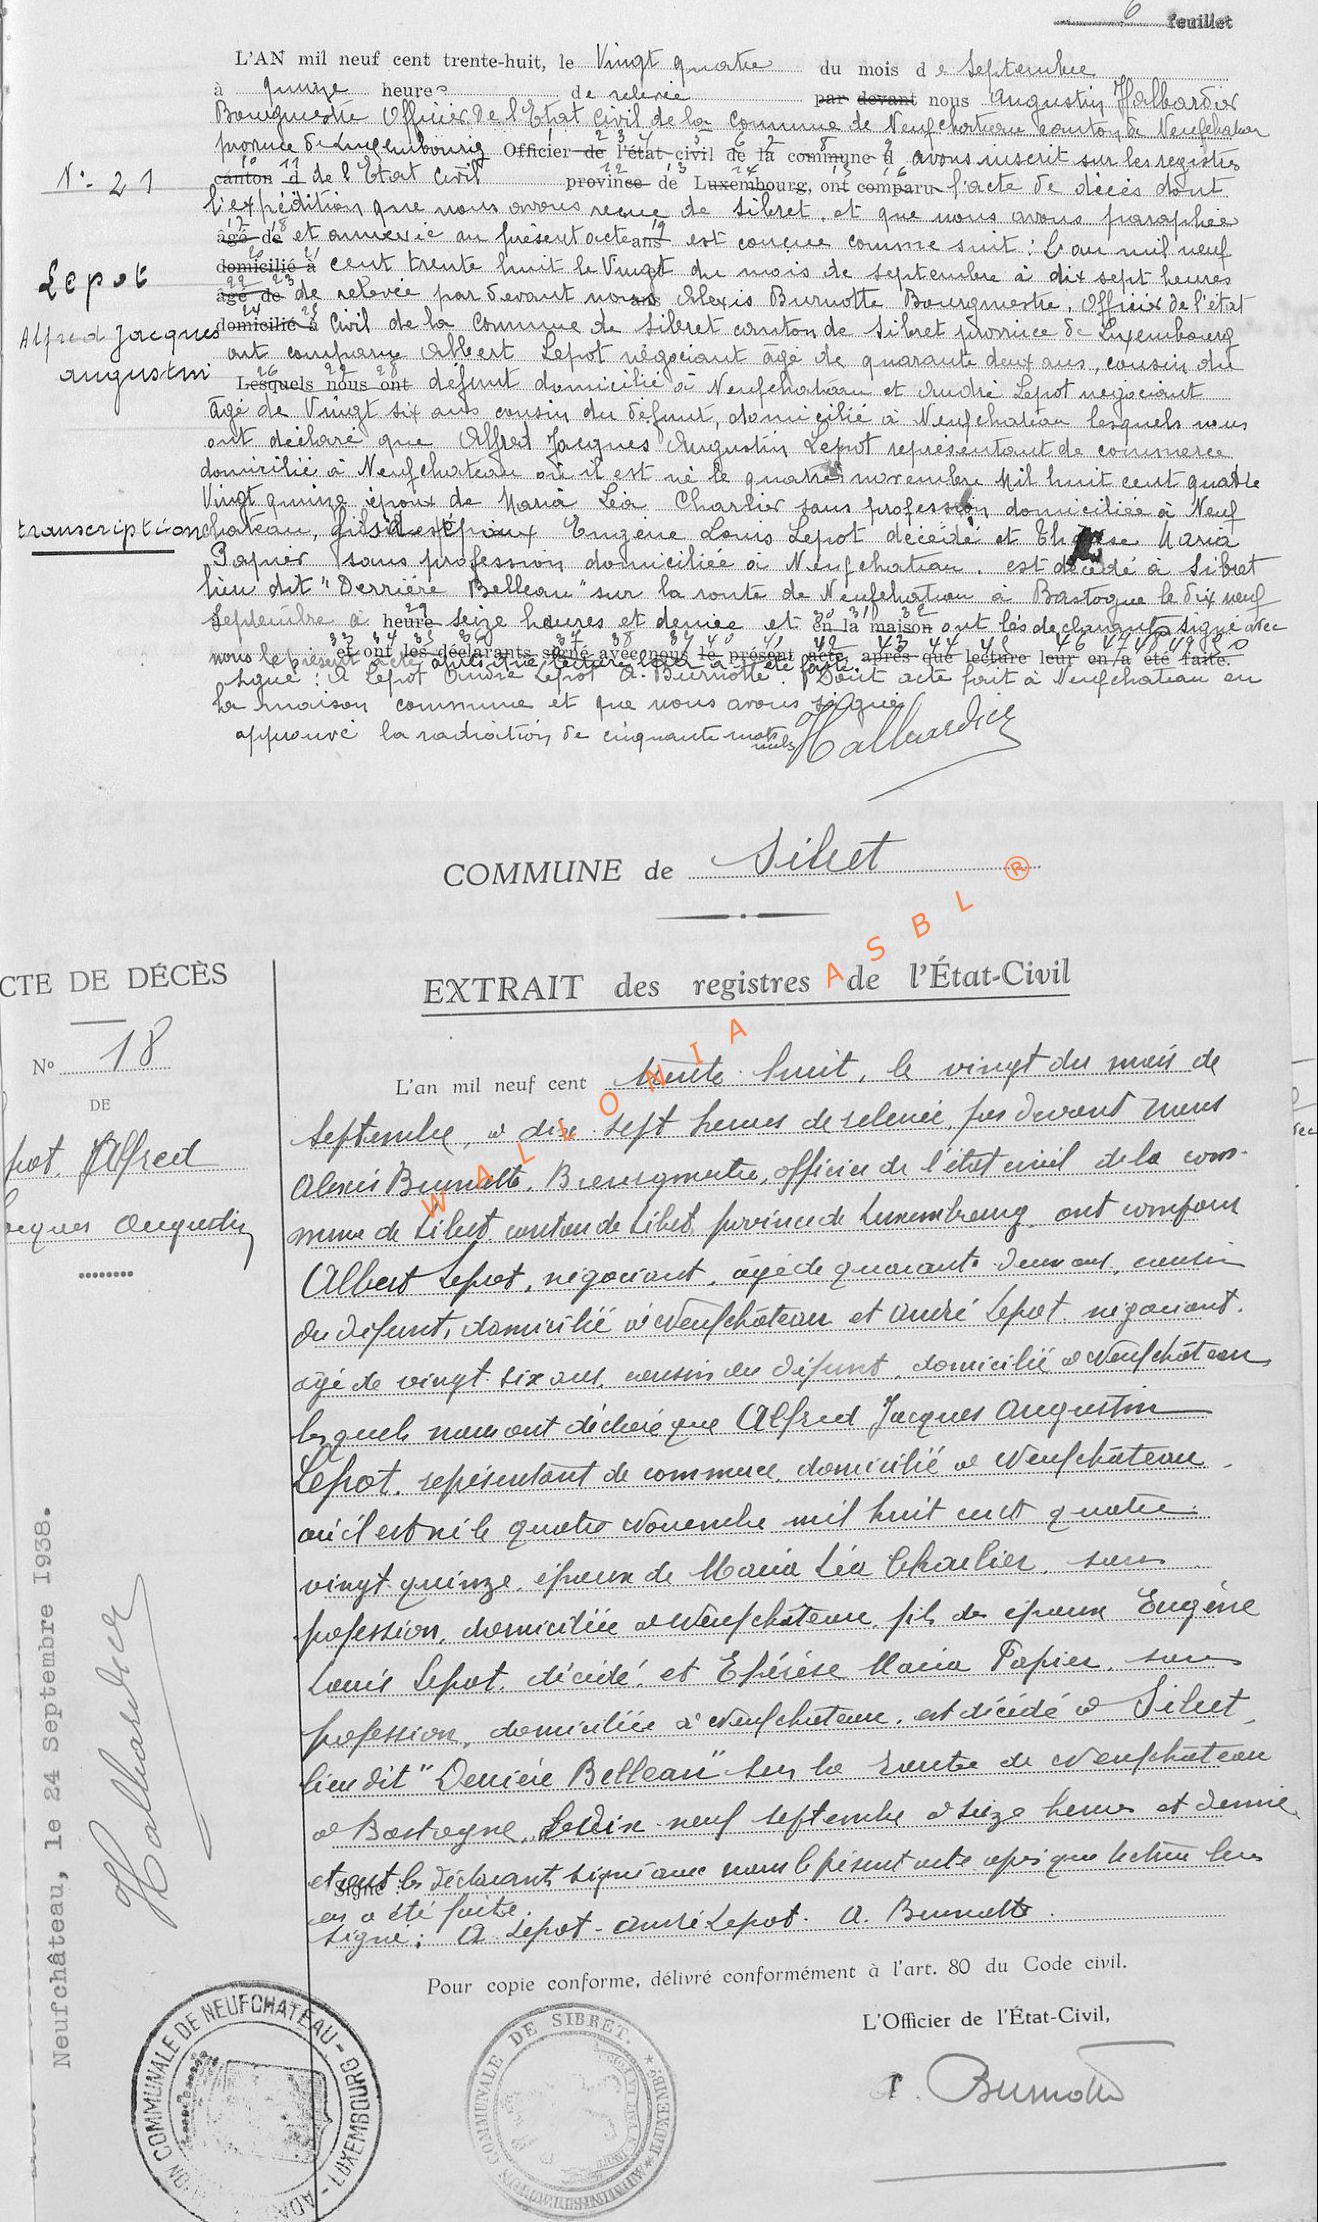 6 feuillet
L'AN mil neuf cent trente-huit, le Vingt quatre du mois de Septembre
à quinze heures de relevée par devant nous Augustin Hallbardier
Bourgmestre Officier de l'Etat Civil de la Commune de Neufchateau canton de Neufchateau
province de Luxembourg Officier de l'état civil de la commune d avons inscrit sur les registres
N° 21
canton d de l'Etat Civil province de Luxembourg, ont comparu l'acte de décès dont
l'expédition que nous avons reçue de Sibret, et que nous avons paraphée
âgé de et annexée au présent acte ans est conçue comme suit : L'an mil neuf
Lepot
domicilié à cent trente huit le Vingt du mois de septembre à dix sept heures
âgé de de relevée par devant nous ans Alexis Burnotte Bourgmestre, Officier de l'état
Alfred Jacques
domicilié à Civil de la Commune de Sibret canton de Sibret province de Luxembourg
augustin
ont comparu Albert Lepot négociant âgé de quarante deux ans, cousin du
Lesquels nous ont défunt domicilié à Neufchateau et André Lepot négociant
âgé de Vingt six ans cousin du défunt, domicilié à Neufchateau lesquels nous
ont déclaré que Alfred Jacques Augustin Lepot représentant de commerce
domicilié à Neufchateau où il est né le quatre novembre Mil huit cent quatre
Vingt quinze époux de Maria Léa Charlier sans profession domiciliée à Neuf
transcription
chateau, fils des époux Eugène Louis Lepot décédé et Thérèse Maria
Papier sans profession domiciliée à Neufchateau. est décédé à Sibret
lieu dit "Derrière Belleau" sur la route de Neufchateau à Bastogne le dix neuf
Septembre à heure seize heures et demie et en la maison ont les déclarants signé avec
nous le présent acte après que lecture leur a été faite.
et ont les déclarants signé avec nous le présent acte, après que lecture leur en a été faite.
Signé : A Lepot André Lepot A. Burnotte. Dont acte fait à Neufchateau en
la maison commune et que nous avons signé
approuvé la radiation de cinquante mots nuls Hallbardier
COMMUNE de Sibret
EXTRAIT des registres de l'État-Civil
WALLONIA ASBL ®
CTE DE DÉCÈS
N° 18
DE
pot Alfred
acques Augustin
L'an mil neuf cent trente huit, le vingt du mois de
septembre, à dix sept heures de relevée, par devant nous
Alexis Burnotte, Bourgmestre, officier de l'état civil de la com-
mune de Sibret canton de Sibret, province de Luxembourg, ont comparu
Albert Lepot, négociant, âgé de quarante deux ans, cousin
du défunt, domicilié à Neufchâteau et André Lepot négociant.
âgé de vingt six ans, cousin du défunt, domicilié à Neufchâteau
lesquels nous ont déclaré que Alfred Jacques Augustin
Lepot, représentant de commerce domicilié à Neufchâteau
où il est né le quatre Novembre mil huit cent quatre
vingt quinze, époux de Maria Léa Charlier, sans
profession, domiciliée à Neufchâteau, fils des époux Eugène
Louis Lepot, décédé, et Thérèse Maria Papier, sans
profession, domiciliée à Neufchateau, est décédé à Sibret,
lieu dit "Derrière Belleau" sur la route de Neufchateau
à Bastogne, Le dix-neuf septembre à seize heures et demie
et ont les déclarants signé avec nous le présent acte après que lecture leur
Signé :
en a été faite.
Signé : A. Lepot - André Lepot. A. Burnotte.
Pour copie conforme, délivré conformément à l'art. 80 du Code civil.
L'Officier de l'État-Civil,
A. Burnotte
Neufchâteau, le 24 Septembre 1938.
Hallbardier
ADMINISTRATION COMMUNALE DE NEUFCHATEAU - LUXEMBOURG
ADMINISTRATION COMMUNALE DE SIBRET. * LUXEMBG *